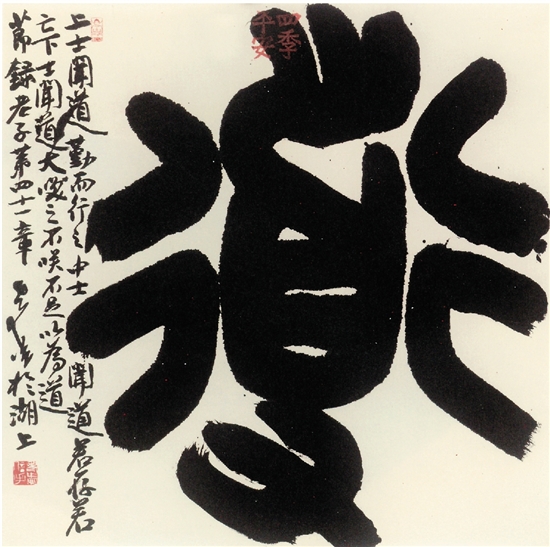 道
四季
平安
上士聞道勤而行之中士聞道若存若
亡下士聞道大咲之不咲不足以為道
節録老子第四十一章 於湖上